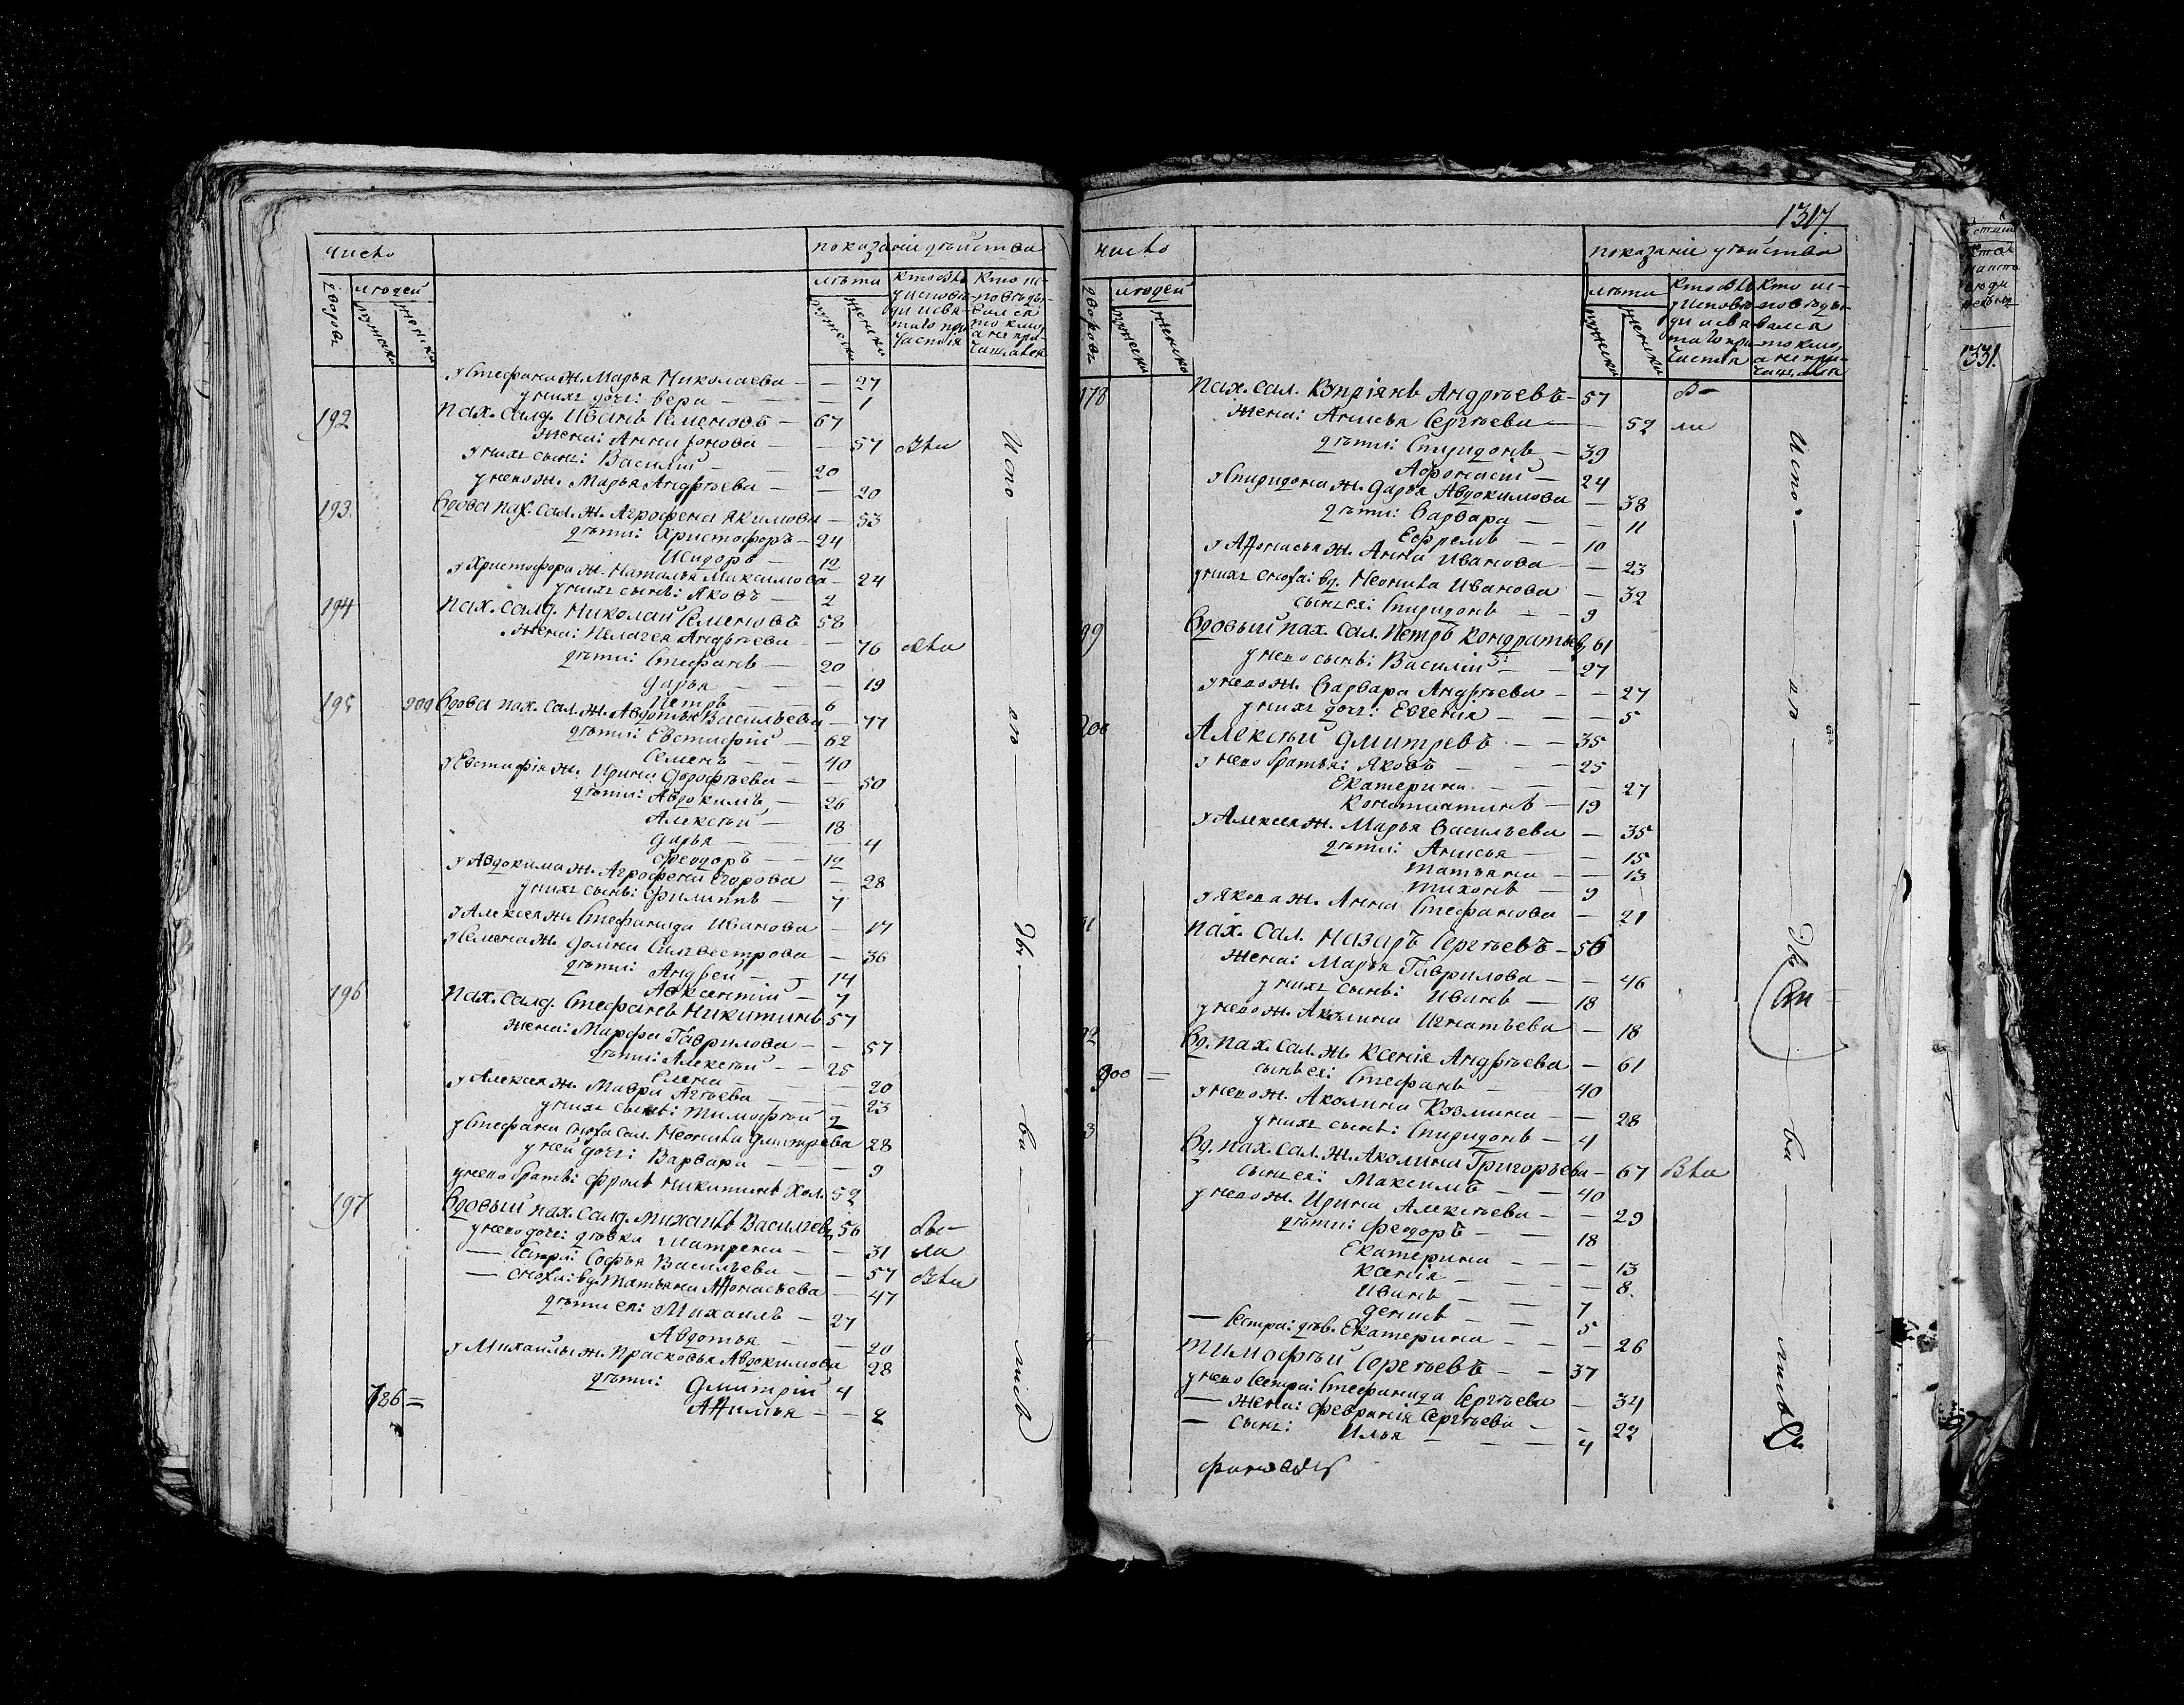 число
показаніе дѣйства
дворовъ
людей
мужеска
женска
лѣта
мужеска
женска
у Стефана ж. Марья Николаева — — 27
у нихъ дочь: Вера — — 1
192 Пах. Салд. Иванъ Семеновъ — 67
жена: Анна — — 57 была
у нихъ сынъ: Василій — 20
у него ж. Марья Андрѣева — — 20
193 Вдова пах. Сал. ж. Агрофена Якимова — 53
дѣти: Христофоръ — 24
Исидоръ — 12
у Христофора ж. Наталья Максимова — 24
у нихъ сынъ: Яковъ — 2
194 Пах. Салд. Николай Семеновъ 58
жена: Пелагея Андрѣева — — 76 была
дѣти: Стефанъ — 20
Дарья — — — 19
Петръ — — 6
195 900 Вдова пах. Сал. ж. Авдотья Васильева — 77
дѣти: Евстафій — 62
Семенъ — 40
у Евстафія ж. Ирина Дорофѣева — — 50
дѣти: Авдокимъ — 26
Алексѣй — 18
Дарья — — — 4
Феодоръ — — 12
у Авдокима ж. Агрофена Егорова — 28
у нихъ сынъ: Филиппъ — 7
у Алексея ж. Стефанида Иванова — 17
у Семена ж. Домна Силвестрова — 36
дѣти: Андрей — 14
Авксентій — 7
196 Пах. Салд. Стефанъ Никитинъ 57
жена: Марфа Гаврилова — — 57
дѣти: Алексѣй — — 25
Елена — — — 20
у Алексея ж. Мавра Агѣева — — 23
у нихъ сынъ: Тимофѣй 2
у Стефана сноха сал. Неонила Дмитрева 28
у ней дочь: Варвара — — 9
у него братъ: Фролъ Никитинъ Хол. 52
197 Вдовый пах. салд. Михаилъ Василиевъ 56 бы-
у него дочь: дѣвка Матрена — — 31 ла
— Сестра: Софья Васильева — — 57 была
— сноха: вд. Татьяна Афонасьева — 47
дѣти ея: Михаилъ — 27
Авдотья — — 20
у Михайлы ж. Прасковья Авдокимова 28
дѣти: Дмитрій 4
786 =
Исповѣдывались
1317
число
показаніе дѣйства
дворовъ
людей
мужеска
женска
лѣта
мужеска
женска
Пах. Сал. Купріянъ Андрѣевъ — 57 Бы-
жена: Анисья Сергѣева — — 52 ли
дѣти: Спиридонъ — 39
Афонасій — 24
у Спиридона ж. Дарья Авдокимова — 38
дѣти: Варвара — — 11
Ефремъ — — 10
у Афонасья ж. Анна Иванова — — 23
у нихъ сноха: вд. Неонила Иванова — 32
сынъ ея: Спиридонъ — — 9
Вдовый пах. Сал. Петръ Кондратьевъ 61
у него сынъ: Василій — — 27
у него ж. Варвара Андрѣева — — 27
у нихъ дочь: Евгенія — — 5
200 Алексѣй Дмитревъ — — 35
у него братья: Яковъ — — 25
Екатерина — — 27
Константинъ — 19
у Алексея ж. Марья Васильева — 35
дѣти: Анисья — — 15
Татьяна — — 13
Тихонъ — 9
у Якова ж. Анна Стефанова — 21
Пах. Сал. Назаръ Сергѣевъ — 56
жена: Марья Гаврилова — — 46
у нихъ сынъ: Иванъ — 18
у него ж. Акилина Игнатьева — 18
Вд. пах. сал. ж. Ксенія Андрѣева — 61
900 =
сынъ ея: Стефанъ — 40
у него ж. Акилина Козмина — — 28
у нихъ сынъ: Спиридонъ — 4
Вд. пах. сал. ж. Акилина Григорьева — 67 Была
сынъ ея: Максимъ — — 40
у него ж. Ирина Алексѣева — — 29
дѣти: Феодоръ — — 18
Екатерина — — 13
Ксенія — — 8
Иванъ — — 7
Денисъ — — 5
— Сестра: дѣв. Екатерина — — 26
Тимофѣй Сергѣевъ — — 37
у него Сестра: Стефанида Сергѣева — 34
— жена: Февранія Сергѣева — — 22
— сынъ: Илья — — 4
Исповѣдывались
1331.